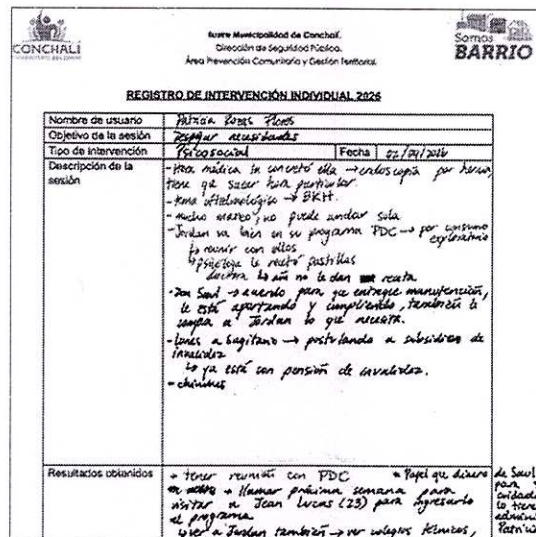 CONCHALÍ
Ilustre Municipalidad de Conchalí.
Dirección de Seguridad Pública.
Área Prevención Comunitaria y Gestión Territorial.
Somos
BARRIO
REGISTRO DE INTERVENCIÓN INDIVIDUAL 2026
Nombre de usuario Patricia Flores
Objetivo de la sesión Despejar necesidades
Tipo de intervención Psicosocial Fecha
Descripción de la sesión
- Hora médica se concretó ella → endoscopía por hernia,
tiene que sacar hora particular.
- tema oftalmológico → BKH.
- mucho mareo, no puede andar sola
- Jordan va bien en su programa PDC → por consumo
exploratorio
↳ reunir con ellos
↳ psicóloga le recetó pastillas
doctora aún no le dan receta
- Don Saul → acuerdo para que entregue manutención,
le está aportando y cumpliendo, también le
compra a Jordan lo que necesita.
- lunes a Sagitario → postulando a subsidio de
invalidez
↳ ya está con pensión de invalidez.
- chinches
Resultados obtenidos
* tener reunión con PDC
* llamar próxima semana para
visitar a Jean Lucas (23) para ingresarlo
al programa
ver a Jordan también → ver colegios técnicos,
* Papel que dinero de Saul
para
cuidado
lo tiene
Patricia